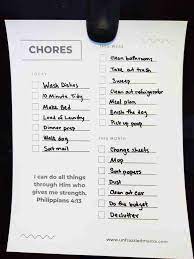 CHORES
TODAY
Wash Dishes
10 Minute Tidy
Make Bed
Load of Laundry
Dinner prep
Walk dog
Sort mail
I can do all things
through Him who
gives me strength.
Philippians 4:13
THIS WEEK
Clean bathrooms
Take out trash
Sweep
Clean out refrigerator
Meal plan
Brush the dog
Pick up poop
THIS MONTH
Change sheets
Mop
Sort papers
Dust
Clean out car
Do the budget
Declutter
www.unfrazzledmama.com